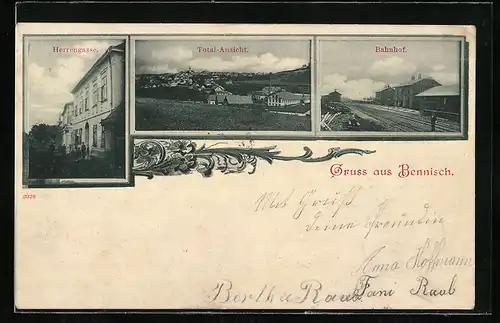 Herrengasse.
Total-Ansicht.
Bahnhof.
Gruss aus Bennisch.
Mit Gruß
deine Freundin
Anna Hoffmann
Bertha Raab. Fani Raab